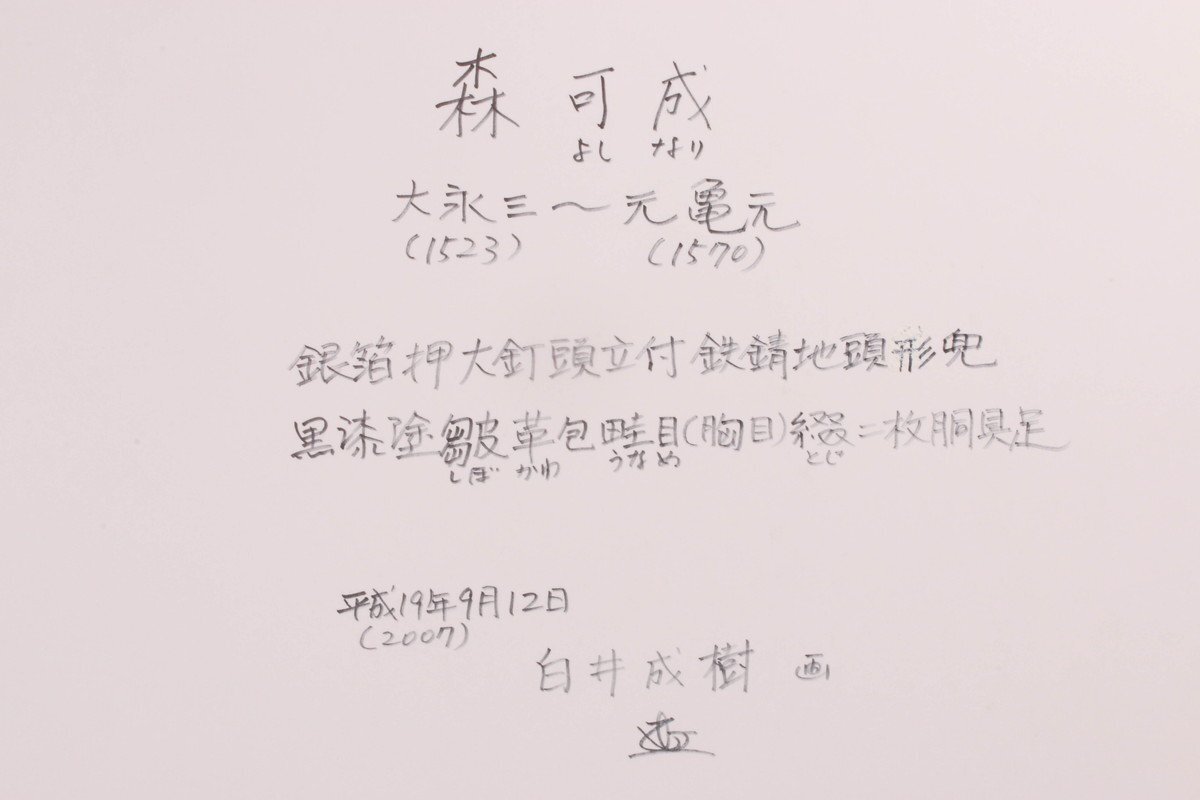 森 可 成
よし なり
大永三〜元亀元
(1523) (1570)
銀箔押大釘頭立付鉄錆地頭形兜
黒漆塗皺皮革包畦目(胸目)綴二枚胴具足
しぼ かわ うなめ とじ
平成19年9月12日
(2007)
白井成樹 画